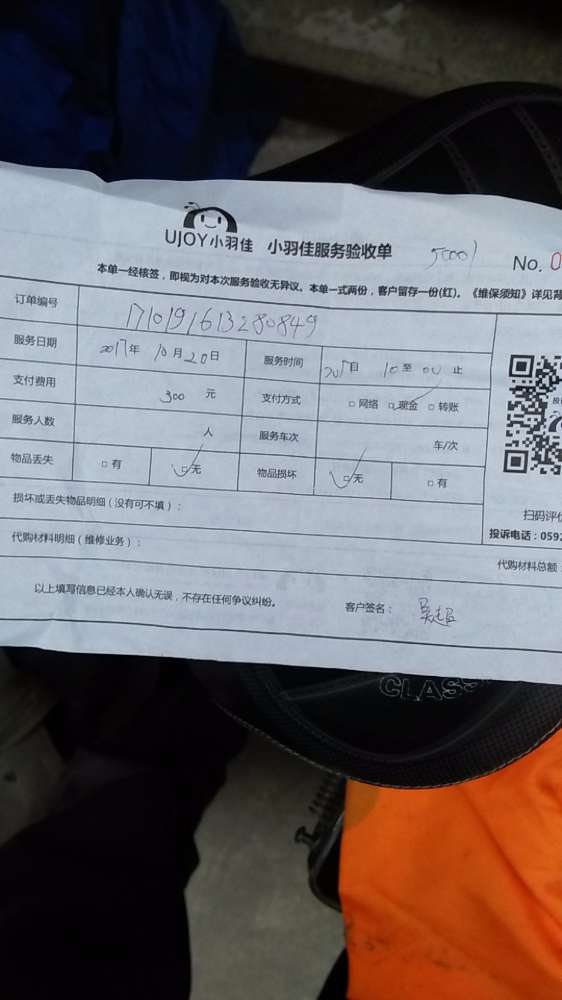 UJOY小羽佳 小羽佳服务验收单 No. 0
本单一经核签，即视为对本次服务验收无异议。本单一式两份，客户留存一份(红)。《维保须知》详见背
订单编号 1710191613280849
服务日期 2017年 10月20日 服务时间 10至00止
支付费用 300 元 支付方式 □网络 □现金 □转账
服务人数 人 服务车次 车/次
物品丢失 □有 □无 物品损坏 □无 □有
损坏或丢失物品明细（没有可不填）：
扫码评价
投诉电话：0592
代购材料明细（维修业务）：
代购材料总额：
以上填写信息已经本人确认无误，不存在任何争议纠纷。 客户签名：
CLASS